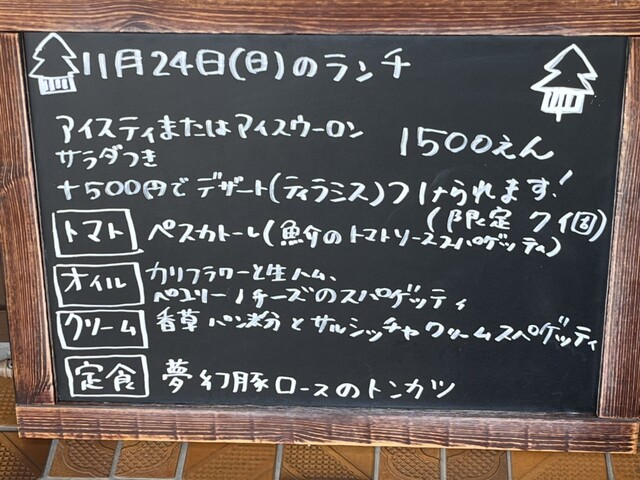 11月24日(日)のランチ
アイスティまたはアイスウーロン
サラダつき
1500えん
+500円でデザート(ティラミス)つけられます!
(限定 7個)
トマト ペスカトーレ(魚介のトマトソーススパゲッティ)
オイル カリフラワーと生ハム、
ペコリーノチーズのスパゲッティ
クリーム 香草パン粉とサルシッチャクリームスパゲッティ
定食 夢幻豚ロースのトンカツ